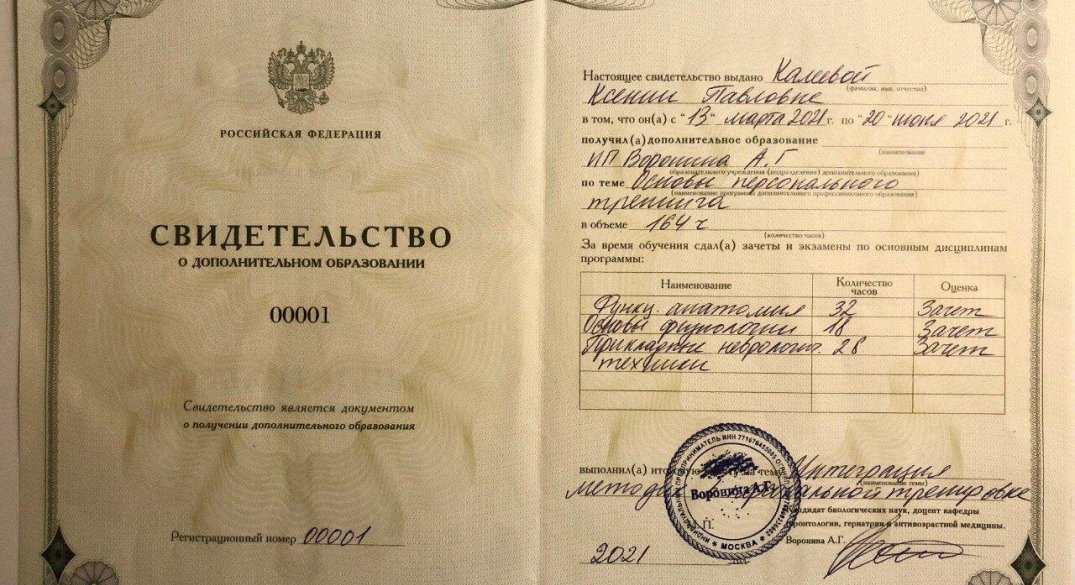 РОССИЙСКАЯ ФЕДЕРАЦИЯ
СВИДЕТЕЛЬСТВО
О ДОПОЛНИТЕЛЬНОМ ОБРАЗОВАНИИ
00001
Свидетельство является документом
о получении дополнительного образования
Регистрационный номер 00001
Настоящее свидетельство выдано Калевой
(фамилия, имя, отчество)
Ксении Павловне
в том, что он(а) с "13" марта 2021 г. по "20" июня 2021 г.
получил(а) дополнительное образование
(наименование
ИП Воронина А.Г
образовательного учреждения (подразделения) дополнительного образования)
по теме Основы персонального
(наименование программы дополнительного профессионального образования)
тренинга
в объеме 164 ч
(количество часов)
За время обучения сдал(а) зачеты и экзамены по основным дисциплинам
программы:
Наименование Количество часов Оценка
Функц. анатомия 32 Зачет
Основы физиологии 18 Зачет
Прикладные невролог. 28 Зачет
техники
выполнил(а) на тему Интеграция
(наименование темы)
тренировке
кандидат биологических наук, доцент кафедры
геронтологии, гериатрии и антивозрастной медицины.
Воронина А.Г.
Воронина А.Г.
МОСКВА
2021